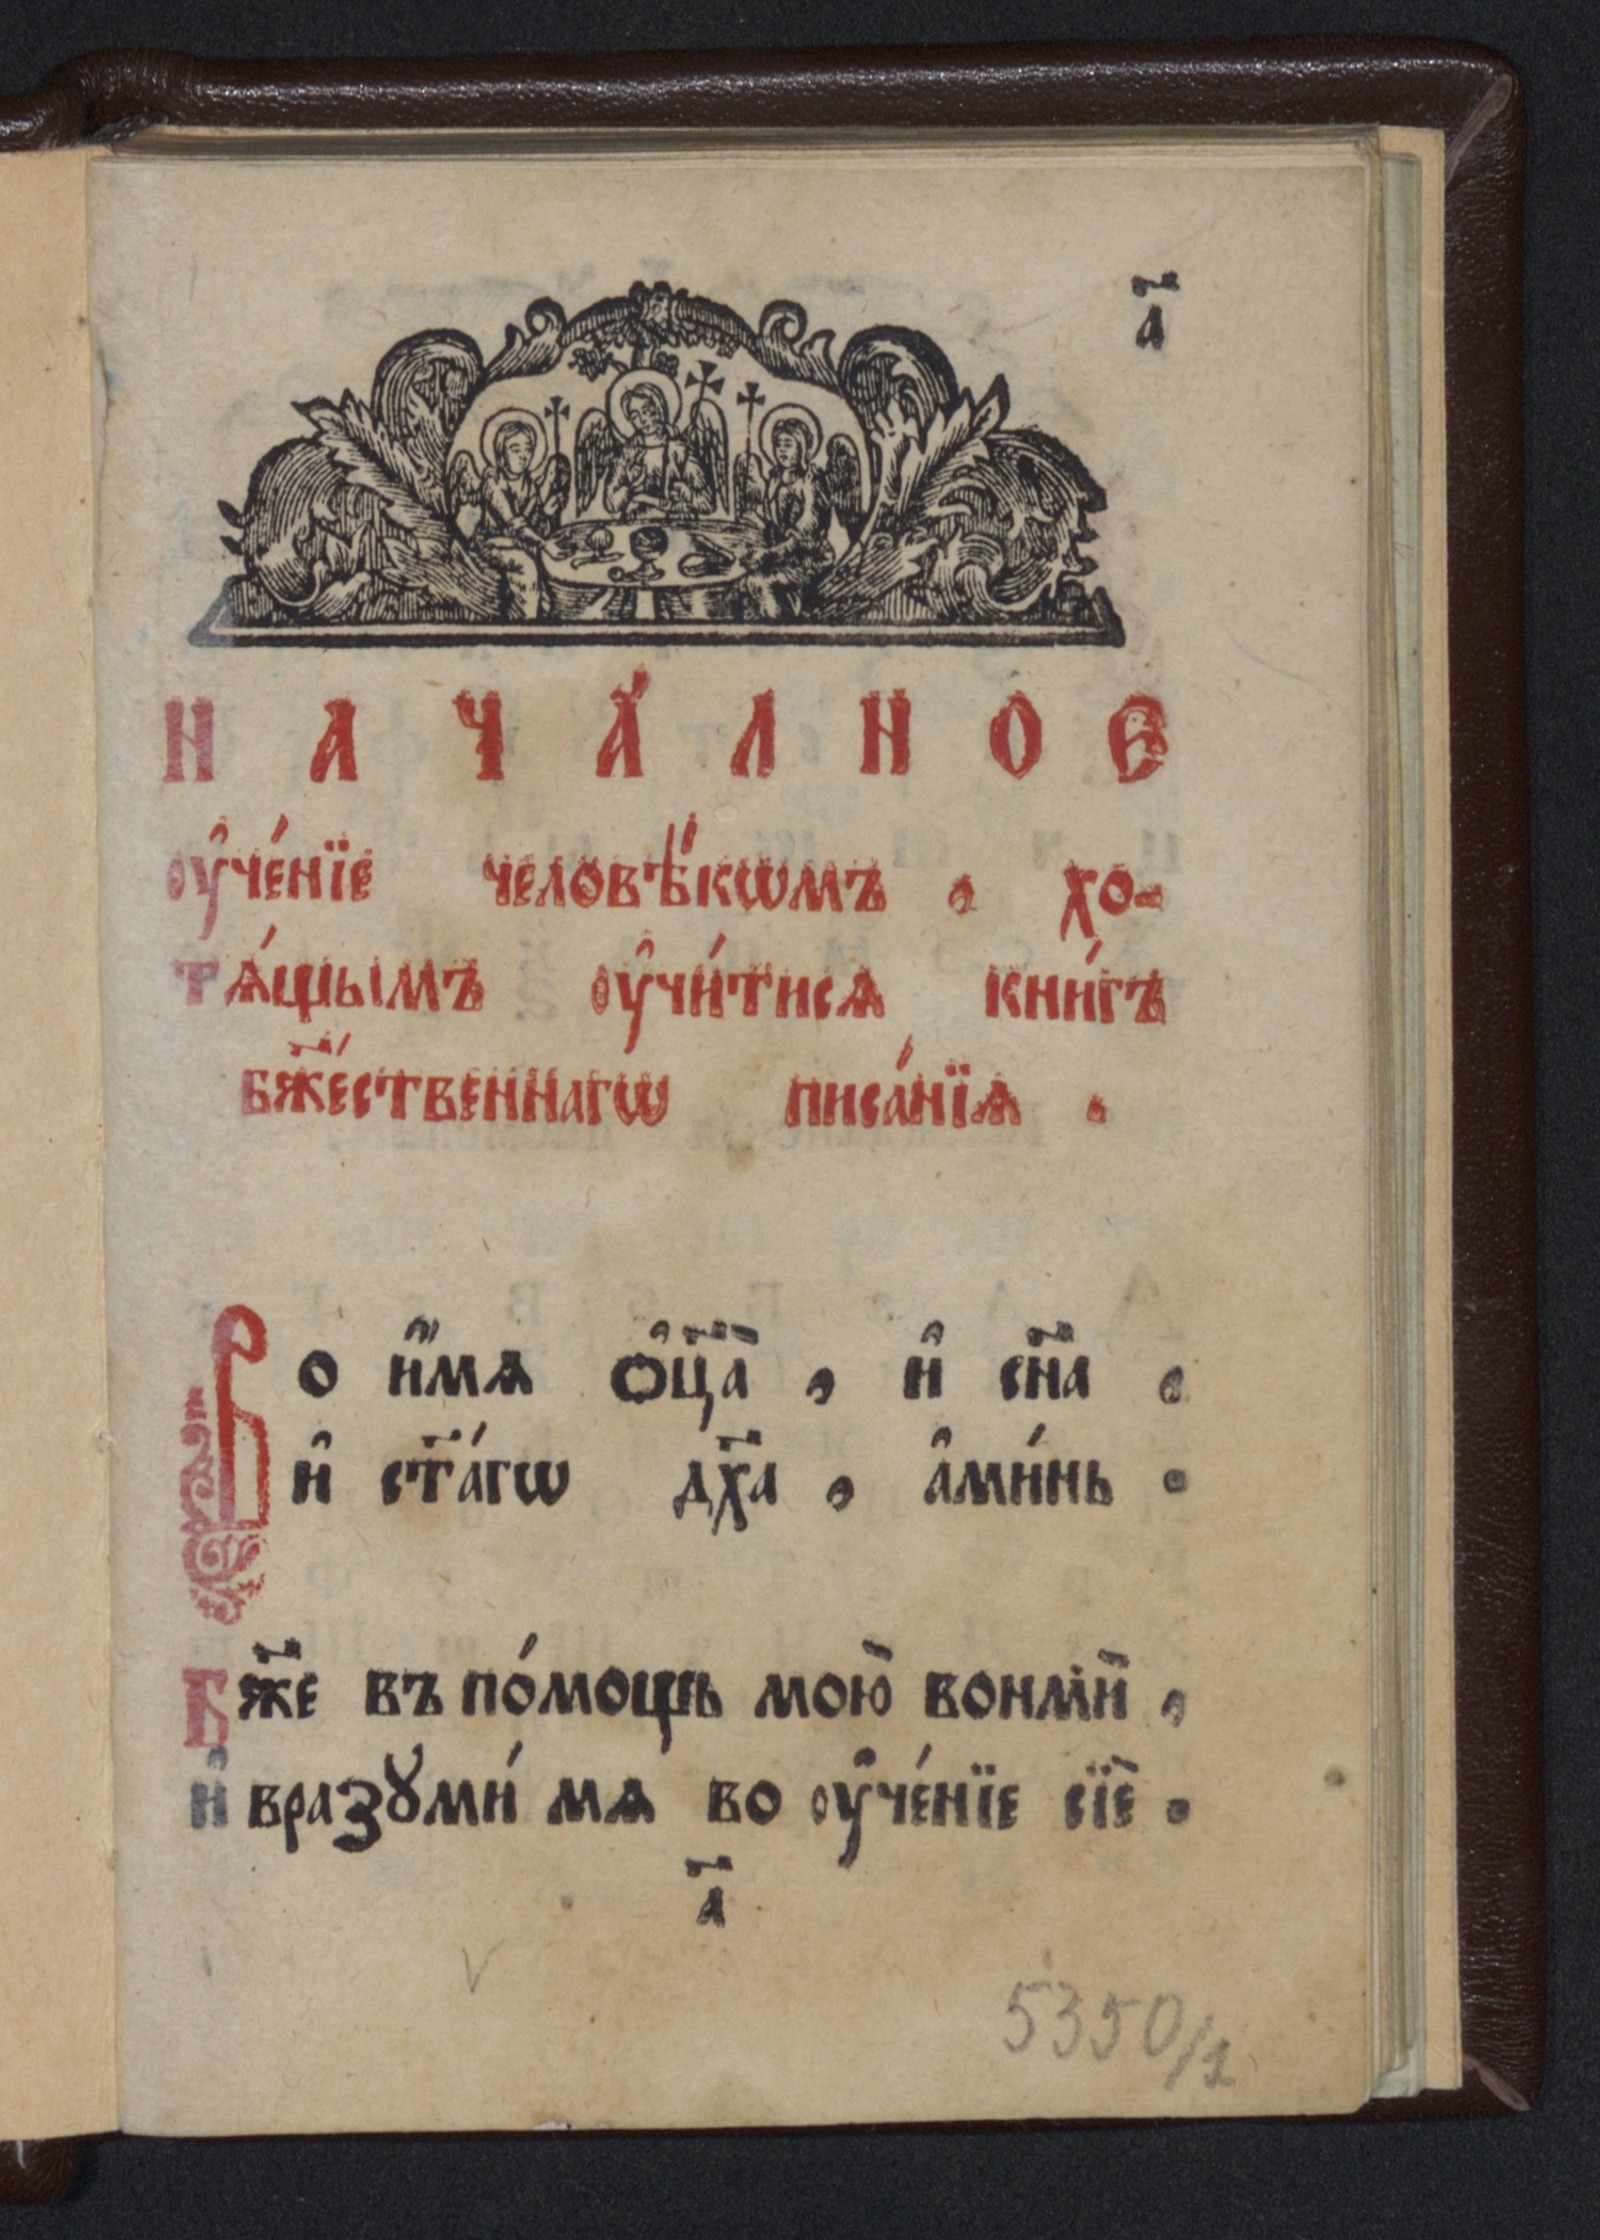 а҃
НАЧА́ЛНОЕ
ᲂу҆че́нїе человѣ́кѡмъ , хо-
тѧ́щымъ ᲂу҆чи́тисѧ кни́гъ
бж҃е́ственнагѡ писа́нїѧ .
Во и҆́мѧ ѻ҆ц҃а̀ , и҆ сн҃а ,
и҆ ст҃а́гѡ дх҃а , а҆ми́нь .
Бж҃е въ по́мощь мою̀ вонмѝ ,
и҆ вразꙋми́ мѧ во ᲂу҆че́нїе сїѐ .
а҃
5350/1